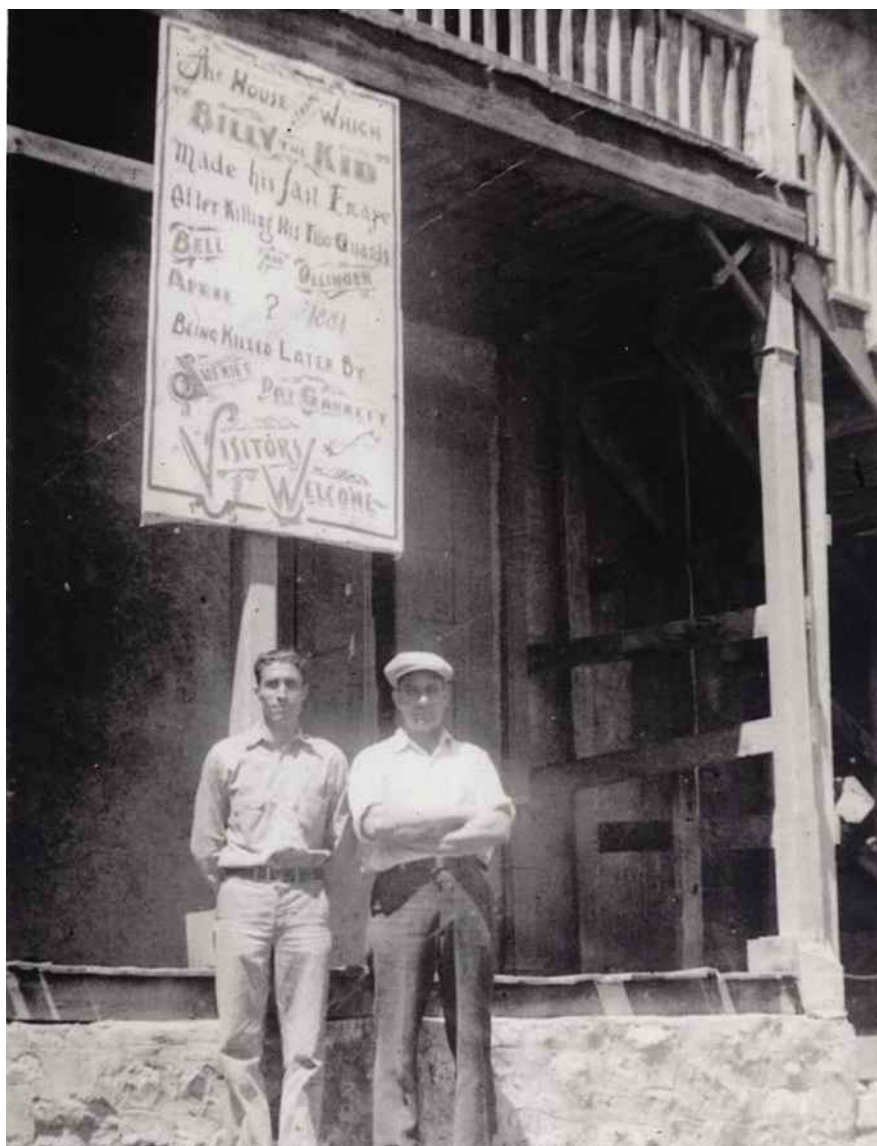 The House from Which
"BILLY THE KID"
Made his Jail Escape
After Killing His Two Guards
BELL AND OLLINGER
APRIL ? 1881
BEING KILLED LATER BY
SHERIFF PAT GARRETT
VISITORS
WELCOME